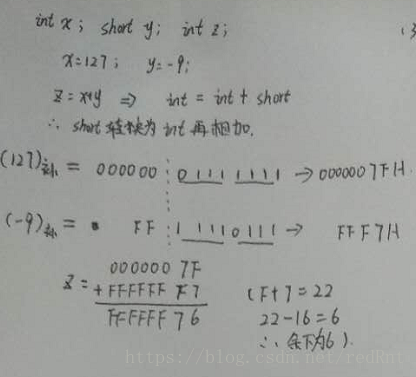 int x; short y; int z;
x=127; y=-9;
z=x+y ⇒ int = int + short
∴ short 转换为 int 再相加.
(127)补 = 000000 0111 1111 → 0000007FH
(-9)补 = FF 1111 0111 → FFF7H
z = 0000007F
+ FFFFFFF7
FFFFFF76
(F+7=22
22-16=6
∴ 余下为6).
https://blog.csdn.net/redRnt